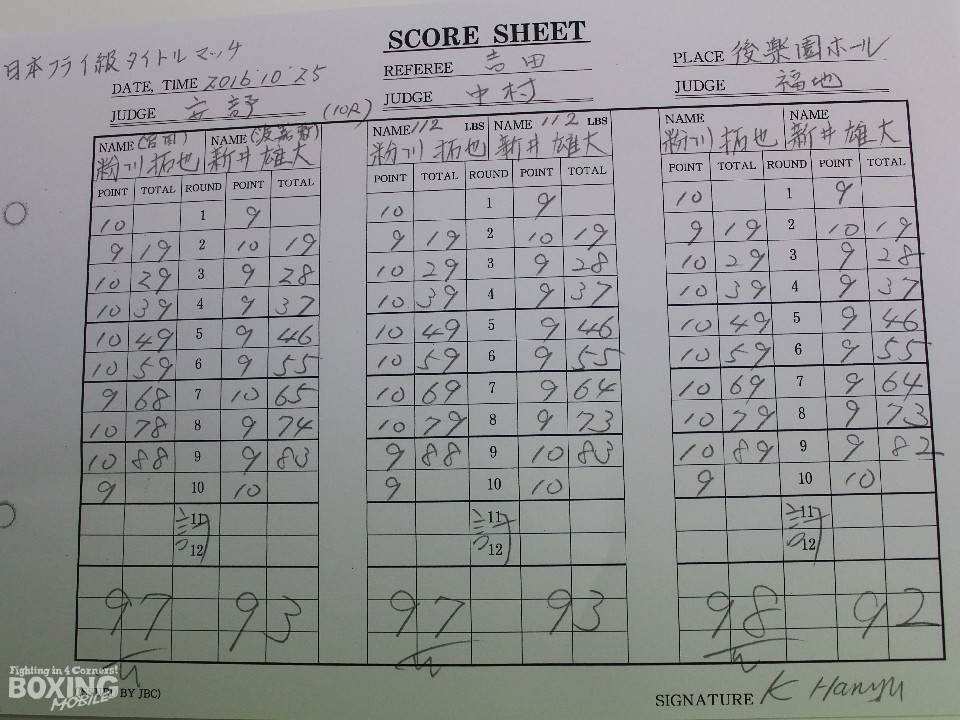 SCORE SHEET
日本フライ級タイトルマッチ
DATE, TIME 2016.10.25
REFEREE 吉田
PLACE 後楽園ホール
JUDGE
(10R)
JUDGE 中村
JUDGE 福地
NAME (宮田) NAME
粉川拓也 新井雄大
NAME 112 LBS NAME 112 LBS
粉川拓也 新井雄大
NAME NAME
粉川拓也 新井雄大
POINT TOTAL ROUND POINT TOTAL POINT TOTAL ROUND POINT TOTAL POINT TOTAL ROUND POINT TOTAL
10 1 9 10 1 9 10 1 9
9 19 2 10 19 9 19 2 10 19 9 19 2 10 19
10 29 3 9 28 10 29 3 9 28 10 29 3 9 28
10 39 4 9 37 10 39 4 9 37 10 39 4 9 37
10 49 5 9 46 10 49 5 9 46 10 49 5 9 46
10 59 6 9 55 10 59 6 9 55 10 59 6 9 55
9 68 7 10 65 10 69 7 9 64 10 69 7 9 64
10 78 8 9 74 10 79 8 9 73 10 79 8 9 73
10 88 9 9 83 9 88 9 10 83 10 89 9 9 82
9 10 10 9 10 10 9 10 10
11 11 11
12 12 12
97 93 97 93 98 92
Fighting in 4 Corners!
BOXING
MOBILE
BY JBC)
SIGNATURE K Hanyu